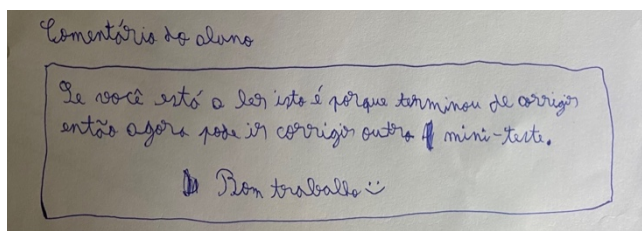 Comentário do aluno
Se você está a ler isto é porque terminou de corrigir
então agora pode ir corrigir outro mini-teste.
Bom trabalho :)